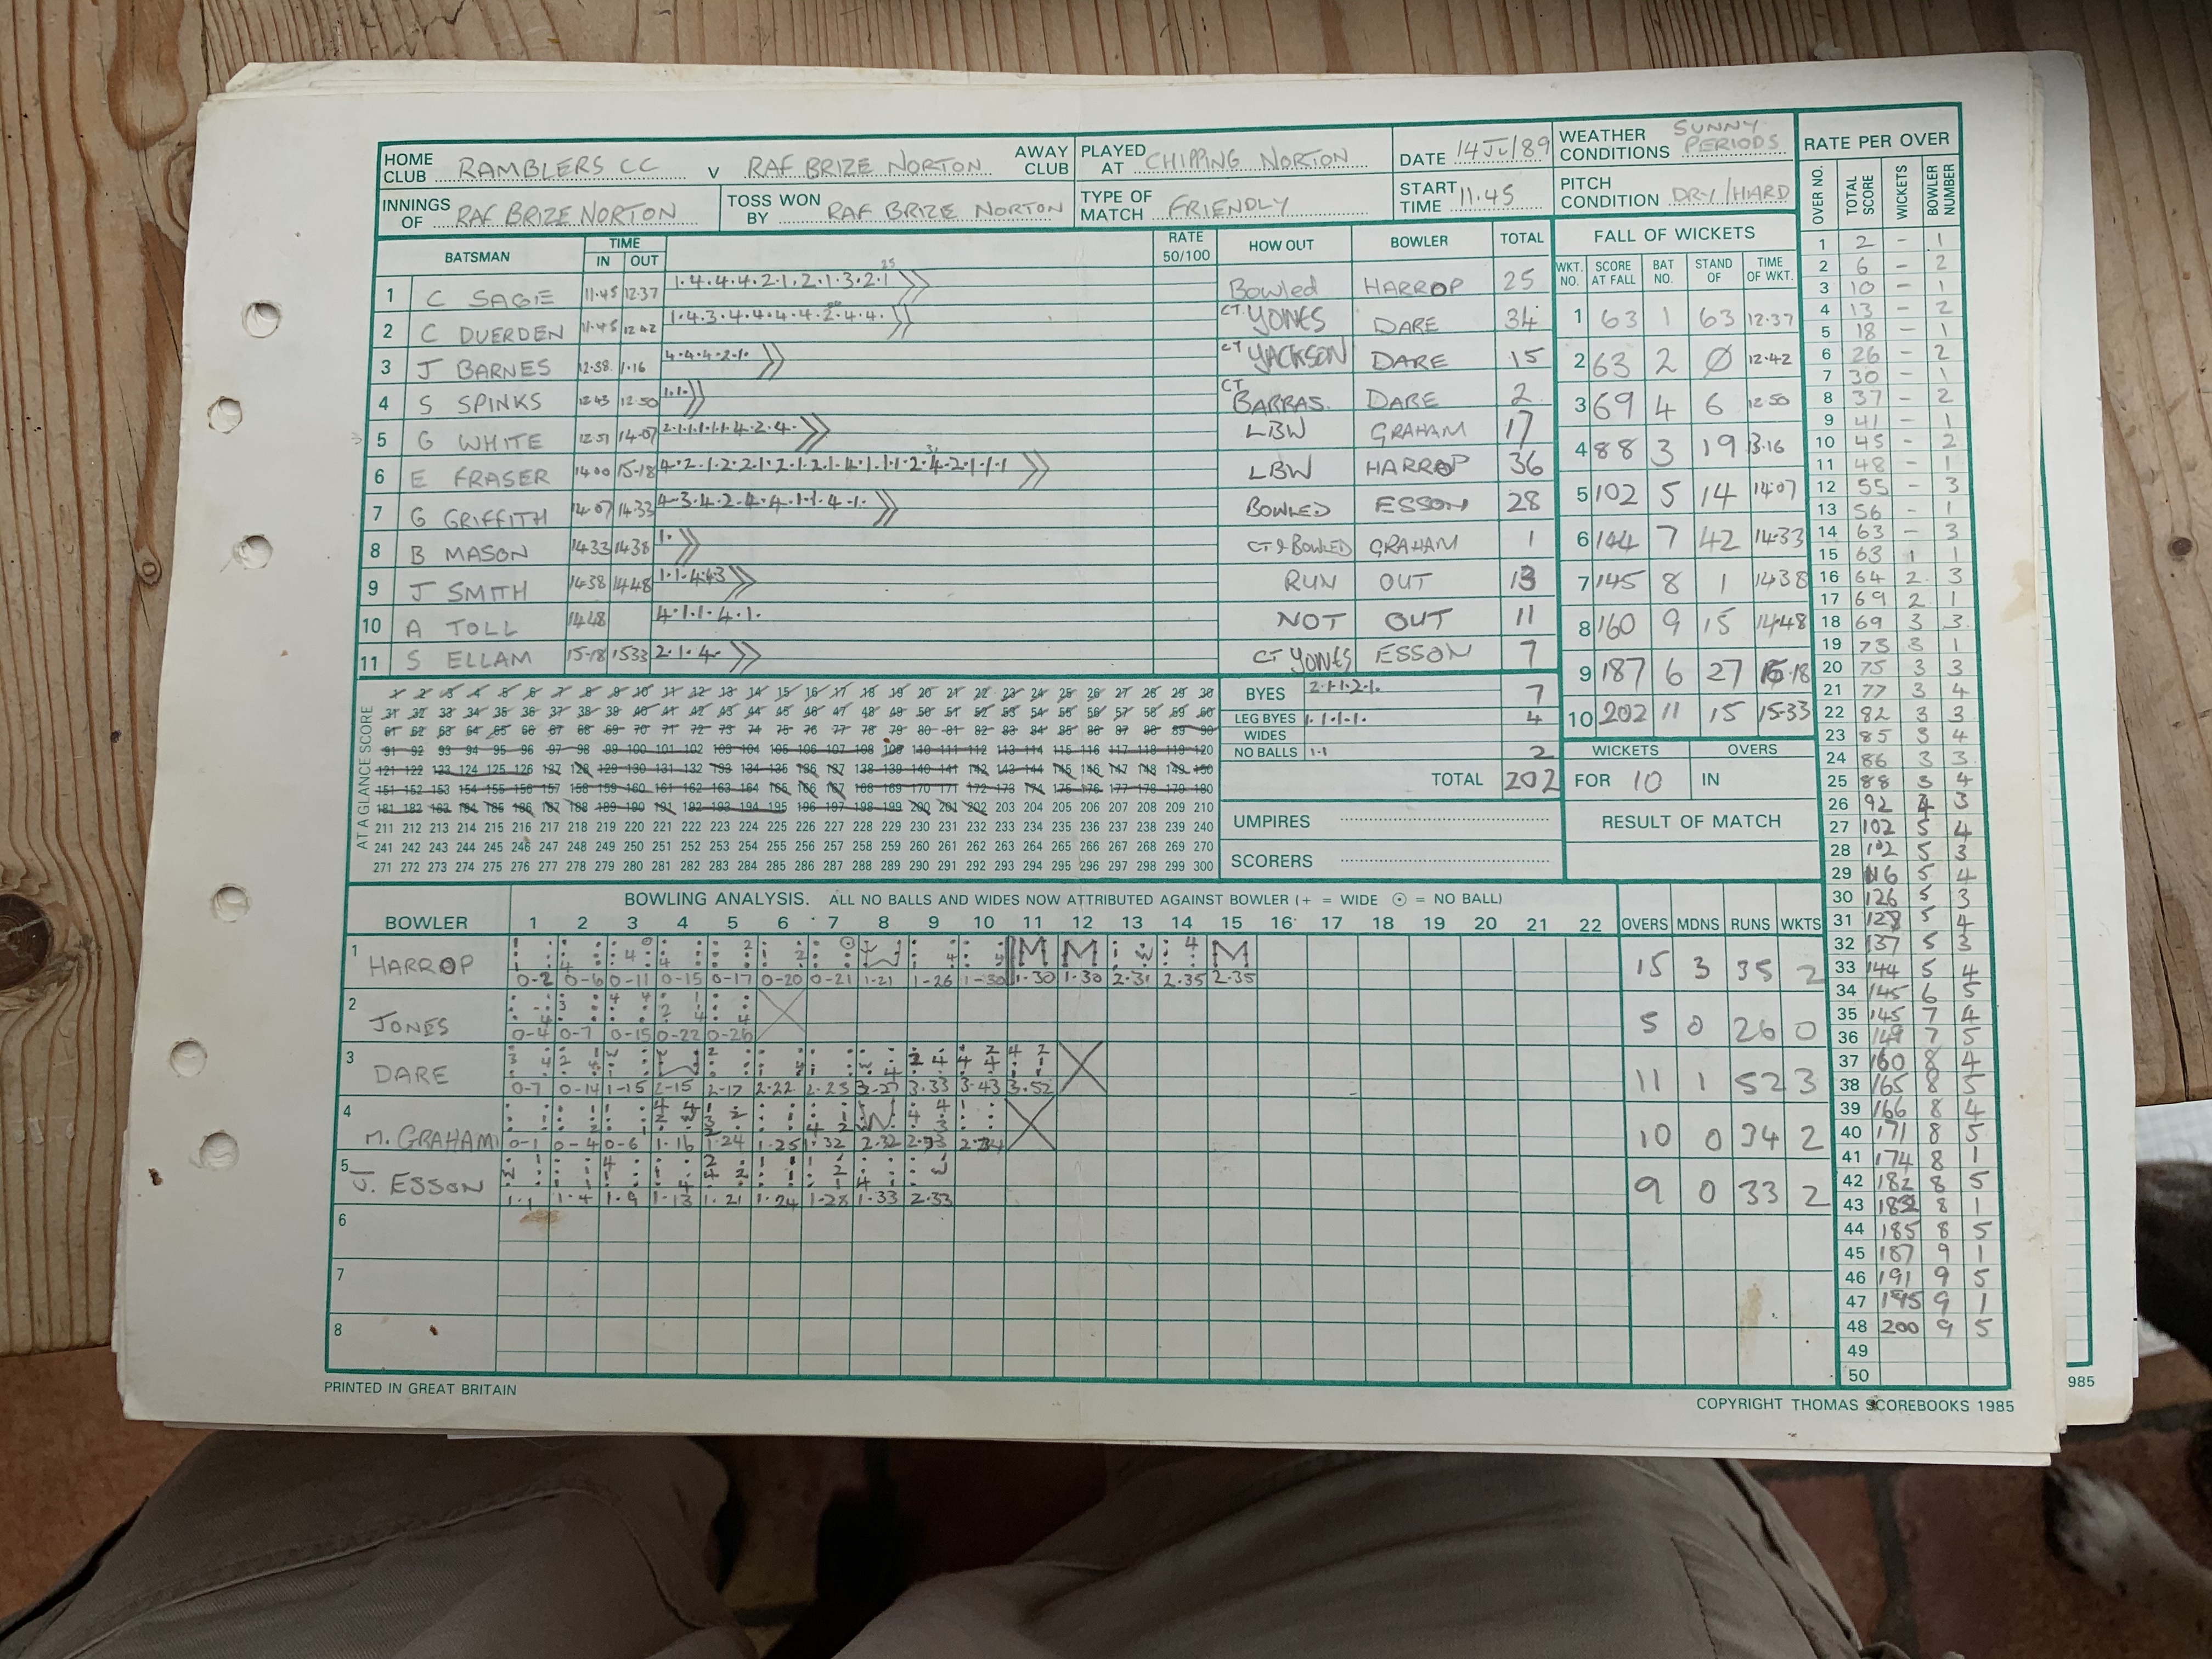 HOME CLUB RAMBLERS CC V RAF BRIZE NORTON AWAY CLUB PLAYED AT CHIPPING NORTON DATE 14 JU/89 WEATHER CONDITIONS SUNNY PERIODS
INNINGS OF RAF BRIZE NORTON TOSS WON BY RAF BRIZE NORTON TYPE OF MATCH FRIENDLY START TIME 11.45 PITCH CONDITION DRY/HARD
BATSMAN TIME IN OUT RATE 50/100 HOW OUT BOWLER TOTAL
1 C SAGE 11.45 12.37 1.4.4.4.2.1.2.1.3.2.1 25 Bowled HARROP 25
2 C DUERDEN 11.45 12.42 1.4.3.4.4.4.4.2.4.4. CT. JONES DARE 34
3 J BARNES 12.38. 1.16 4.4.4.2.1. CT JACKSON DARE 15
4 S SPINKS 12.43 12.50 1.1. CT BARRAS. DARE 2
5 G WHITE 12.51 14.07 2.1.1.1.1.1.4.2.4. LBW GRAHAM 17
6 E FRASER 14.00 15.18 4.2.1.2.2.1.2.1.2.1.4.1.1.1.2.4.2.1.1.1 LBW HARROP 36
7 G GRIFFITH 14.07 14.33 4.3.4.2.4.4.1.1.4.1. BOWLED ESSON 28
8 B MASON 14.33 14.38 1. CT & BOWLED GRAHAM 1
9 J SMITH 14.38 14.48 1.1.4.4.3 RUN OUT 13
10 A TOLL 14.48 4.1.1.4.1. NOT OUT 11
11 S ELLAM 15.18 15.33 2.1.4. CT JONES ESSON 7
FALL OF WICKETS
WKT. NO. SCORE AT FALL BAT NO. STAND OF TIME OF WKT.
1 63 1 63 12.37
2 63 2 Ø 12.42
3 69 4 6 12.50
4 88 3 19 13.16
5 102 5 14 14.07
6 144 7 42 14.33
7 145 8 1 14.38
8 160 9 15 14.48
9 187 6 27 15.18
10 202 11 15 15.33
AT A GLANCE SCORE
1 2 3 4 5 6 7 8 9 10 11 12 13 14 15 16 17 18 19 20 21 22 23 24 25 26 27 28 29 30
31 32 33 34 35 36 37 38 39 40 41 42 43 44 45 46 47 48 49 50 51 52 53 54 55 56 57 58 59 60
61 62 63 64 65 66 67 68 69 70 71 72 73 74 75 76 77 78 79 80 81 82 83 84 85 86 87 88 89 90
91 92 93 94 95 96 97 98 99 100 101 102 103 104 105 106 107 108 109 110 111 112 113 114 115 116 117 118 119 120
121 122 123 124 125 126 127 128 129 130 131 132 133 134 135 136 137 138 139 140 141 142 143 144 145 146 147 148 149 150
151 152 153 154 155 156 157 158 159 160 161 162 163 164 165 166 167 168 169 170 171 172 173 174 175 176 177 178 179 180
181 182 183 184 185 186 187 188 189 190 191 192 193 194 195 196 197 198 199 200 201 202 203 204 205 206 207 208 209 210
211 212 213 214 215 216 217 218 219 220 221 222 223 224 225 226 227 228 229 230 231 232 233 234 235 236 237 238 239 240
241 242 243 244 245 246 247 248 249 250 251 252 253 254 255 256 257 258 259 260 261 262 263 264 265 266 267 268 269 270
271 272 273 274 275 276 277 278 279 280 281 282 283 284 285 286 287 288 289 290 291 292 293 294 295 296 297 298 299 300
BYES 2.1.1.2.1. 7
LEG BYES 1.1.1.1. 4
WIDES
NO BALLS 1.1 2
TOTAL 202
WICKETS OVERS
FOR 10 IN
UMPIRES
SCORERS
RESULT OF MATCH
BOWLING ANALYSIS. ALL NO BALLS AND WIDES NOW ATTRIBUTED AGAINST BOWLER (+ = WIDE ⊙ = NO BALL)
BOWLER 1 2 3 4 5 6 7 8 9 10 11 12 13 14 15 16 17 18 19 20 21 22 OVERS MDNS RUNS WKTS
1 HARROP 0-2 0-6 0-11 0-15 0-17 0-20 0-21 1-21 1-26 1-30 M 1.30 M 1.30 2.31 2.35 M 2.35 15 3 35 2
2 JONES 0-4 0-7 0-15 0-22 0-26 5 0 26 0
3 DARE 0-7 0-14 1-15 2-15 2-17 2.22 2.23 3-27 3.33 3.43 3.52 11 1 52 3
4 M. GRAHAM 0-1 0-4 0-6 1.16 1.24 1.25 1.32 2.32 10 0 34 2
5 J. ESSON 1.1 1.4 1.9 1-13 1.21 1.24 1.28 1.33 2.33 9 0 33 2
6
7
8
RATE PER OVER
OVER NO. TOTAL SCORE WICKETS BOWLER NUMBER
1 2 - 1
2 6 - 2
3 10 - 1
4 13 - 2
5 18 - 1
6 26 - 2
7 30 - 1
8 37 - 2
9 41 - 1
10 45 - 2
11 48 - 1
12 55 - 3
13 56 - 1
14 63 - 3
15 63 1 1
16 64 2. 3
17 69 2 1
18 69 3 3.
19 73 3 1
20 75 3 3
21 77 3 4
22 82 3 3
23 85 3 4
24 86 3 3
25 88 3 4
26 92 4 3
27 102 5 4
28 102 5 3
29 116 5 4
30 126 5 3
31 128 5 4
32 137 5 3
33 144 5 4
34 145 6 5
35 145 7 4
36 149 7 5
37 160 8 4
38 165 8 5
39 166 8 4
40 171 8 5
41 174 8 1
42 182 8 5
43 182 8 1
44 185 8 5
45 187 9 1
46 191 9 5
47 195 9 1
48 200 9 5
49
50
PRINTED IN GREAT BRITAIN
COPYRIGHT THOMAS SCOREBOOKS 1985
985